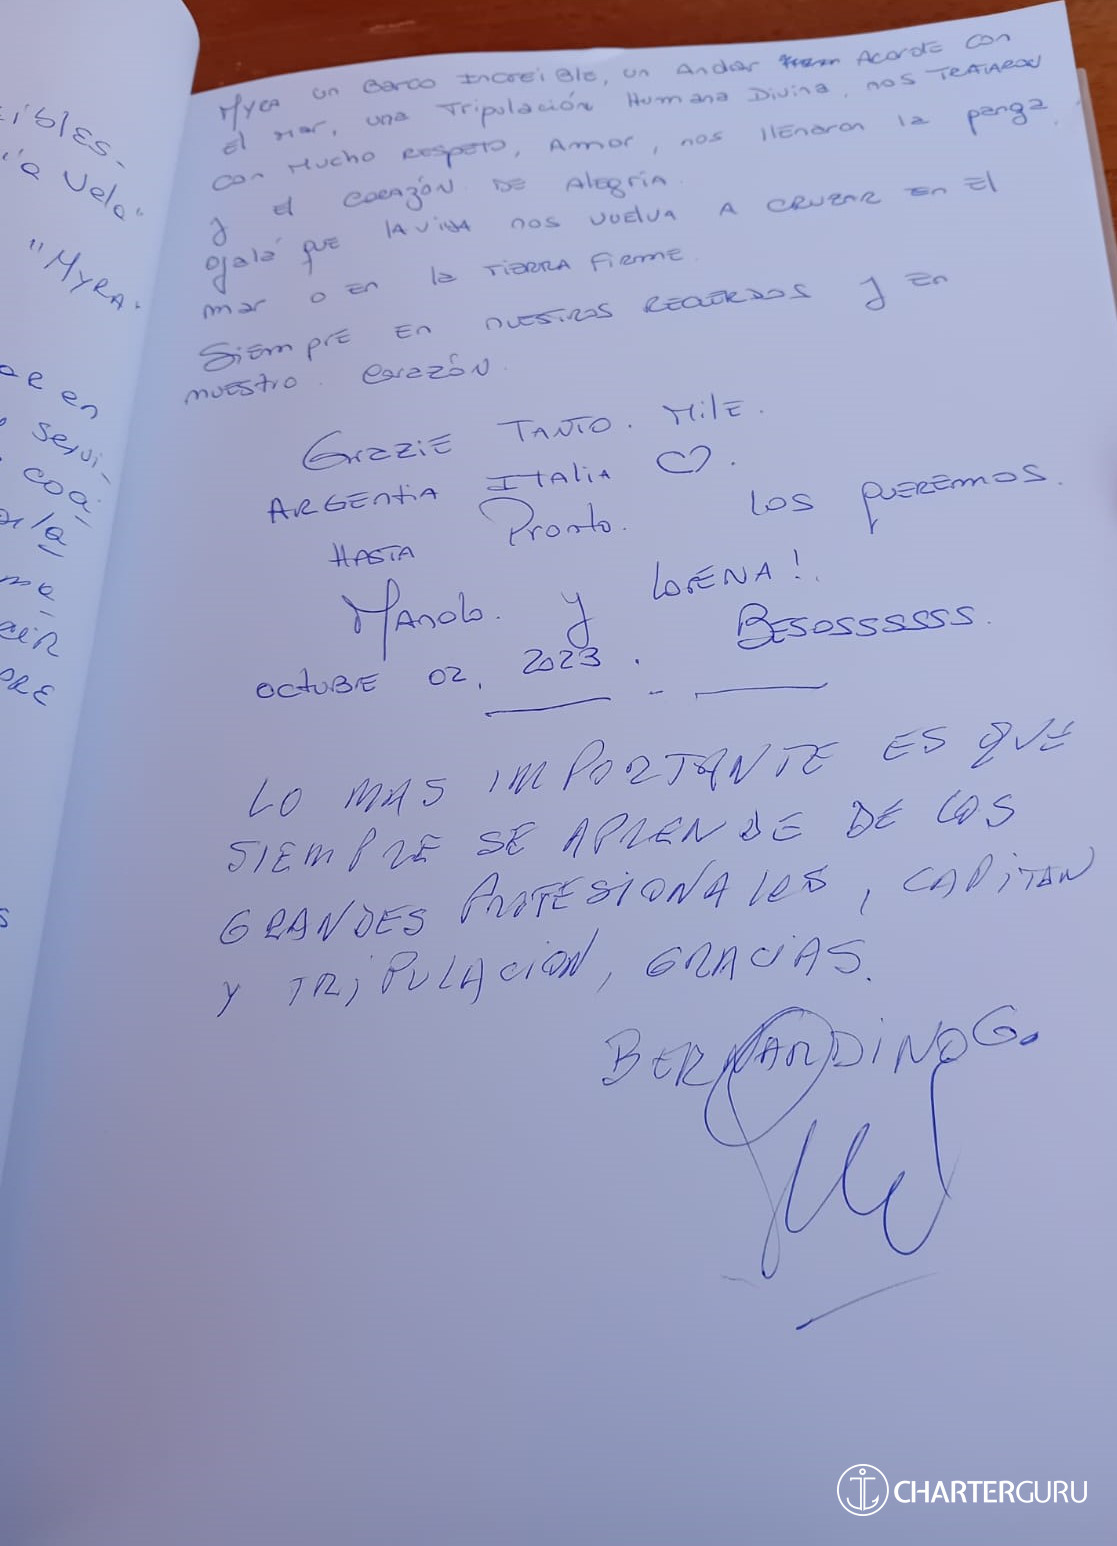 ibles.
"a vela"
"MYRA.
en
servi-
coa-
la
me
CER
PRE
s
MYRA un Barco Increible, un Andar Acorde con
el mar, una Tripulación Humana Divina, nos TRATARON
con Mucho RESPETO, Amor, nos llenaron la panza
y el CORAZÓN DE Alegria.
Ojalá que LA VIDA nos VUELVA A CRUZAR en el
mar o en la TIERRA FIRME.
Siempre En nuestros RECUERDOS y En
nuestro. Corazón.
Grazzie TANTO. MilE.
ARGENtiA ITAliA ♡.
HASTA Pronto. los QUEREMOS.
MANolo. y LORENA!.
OCTUBIE 02, 2023. BESOSSSSSS.
LO MAS IMPORTANTE ES QUE
SIEMPRE SE APRENDE DE LOS
GRANDES PROFESIONALES, CAPITAN
Y TRIPULACION, GRACIAS.
BERNARDINO G.
CHARTERGURU